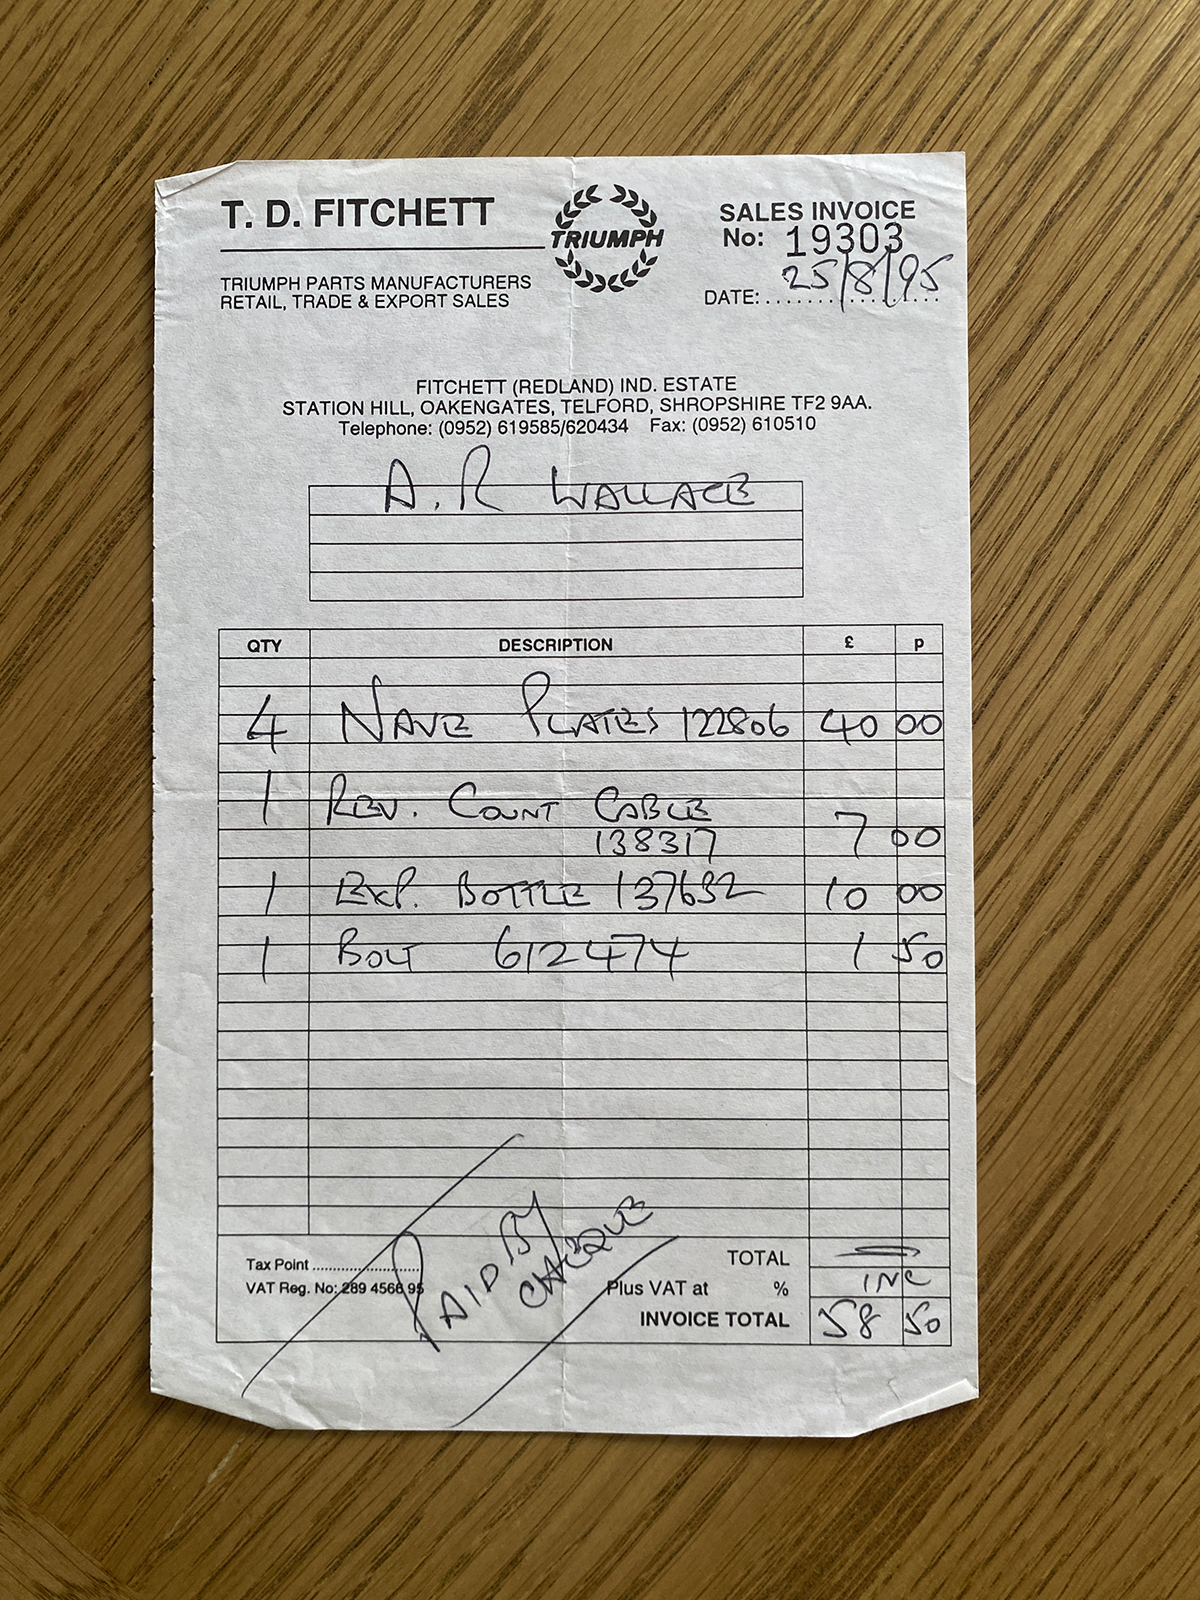 T. D. FITCHETT
TRIUMPH
SALES INVOICE
No: 19303
DATE: 25/8/95
TRIUMPH PARTS MANUFACTURERS
RETAIL, TRADE & EXPORT SALES
FITCHETT (REDLAND) IND. ESTATE
STATION HILL, OAKENGATES, TELFORD, SHROPSHIRE TF2 9AA.
Telephone: (0952) 619585/620434 Fax: (0952) 610510
A.R WALLACE
QTY DESCRIPTION £ p
4 NAVE PLATES 122806 40 00
1 REV. COUNT CABLE
138317 7 00
1 EXP. BOTTLE 137632 10 00
1 BOLT 612474 1 50
PAID BY
CHEQUE
Tax Point ........................
VAT Reg. No: 289 4566 95
TOTAL
Plus VAT at % INC
INVOICE TOTAL 58 50